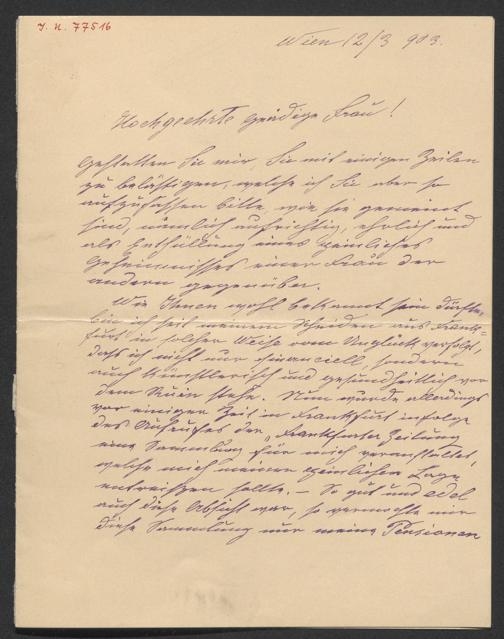 J. N. 77516
Wien 12/3 903.
Hochgeehrte gnädige Frau!
Gestatten Sie mir, Sie mit einigen Zeilen
zu belästigen, welche ich Sie aber so
aufzufassen bitte, wie sie gemeint
sind, nemlich aufrichtig, ehrlich und
als Enthüllung eines peinlichen
Geheimnisses einer Frau der
andern gegenüber.
Wie Ihnen wohl bekannt sein dürfte,
bin ich seit meinem Scheiden aus Frank-
furt in solcher Weise vom Unglück verfolgt,
daß ich nicht nur financiell, sondern
auch künstlerisch und gesundheitlich vor
dem Ruin stehe. Nun wurde allerdings
vor einiger Zeit in Frankfurt infolge
des Aufrufes der "Frankfurter Zeitung
eine Sammlung für mich veranstaltet,
welche mich meiner peinlichen Lage
entreißen sollte. – So gut und edel
auch diese Absicht war, so vermochte mir
diese Sammlung nur meine Pensionen